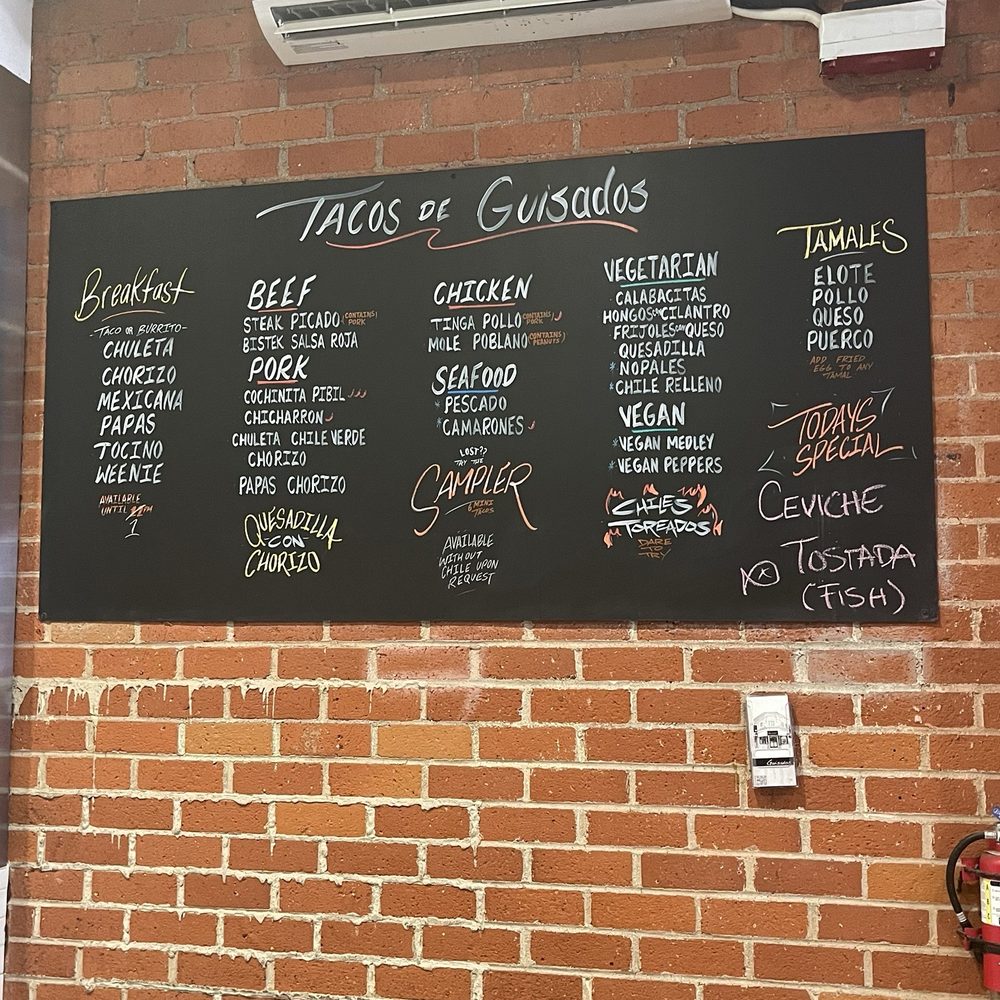 TACOS DE GUISADOS
Breakfast
-TACO OR BURRITO-
CHULETA
CHORIZO
MEXICANA
PAPAS
TOCINO
WEENIE
AVAILABLE
UNTIL
1
BEEF
STEAK PICADO (CONTAINS PORK)
BISTEK SALSA ROJA
PORK
COCHINITA PIBIL
CHICHARRON
CHULETA CHILE VERDE
CHORIZO
PAPAS CHORIZO
QUESADILLA
-CON-
CHORIZO
CHICKEN
TINGA POLLO (CONTAINS PORK)
MOLE POBLANO (CONTAINS PEANUTS)
SEAFOOD
*PESCADO
*CAMARONES
LOST??
TRY THE
SAMPLER
6 MINI
TACOS
AVAILABLE
WITHOUT
CHILE UPON
REQUEST
VEGETARIAN
CALABACITAS
HONGOS CON CILANTRO
FRIJOLES CON QUESO
QUESADILLA
*NOPALES
*CHILE RELLENO
VEGAN
*VEGAN MEDLEY
*VEGAN PEPPERS
CHILES
TOREADOS
DARE
TO
TRY
TAMALES
ELOTE
POLLO
QUESO
PUERCO
ADD FRIED
EGG TO ANY
TAMAL
TODAYS
SPECIAL
CEVICHE
TOSTADA
(FISH)
Guisados